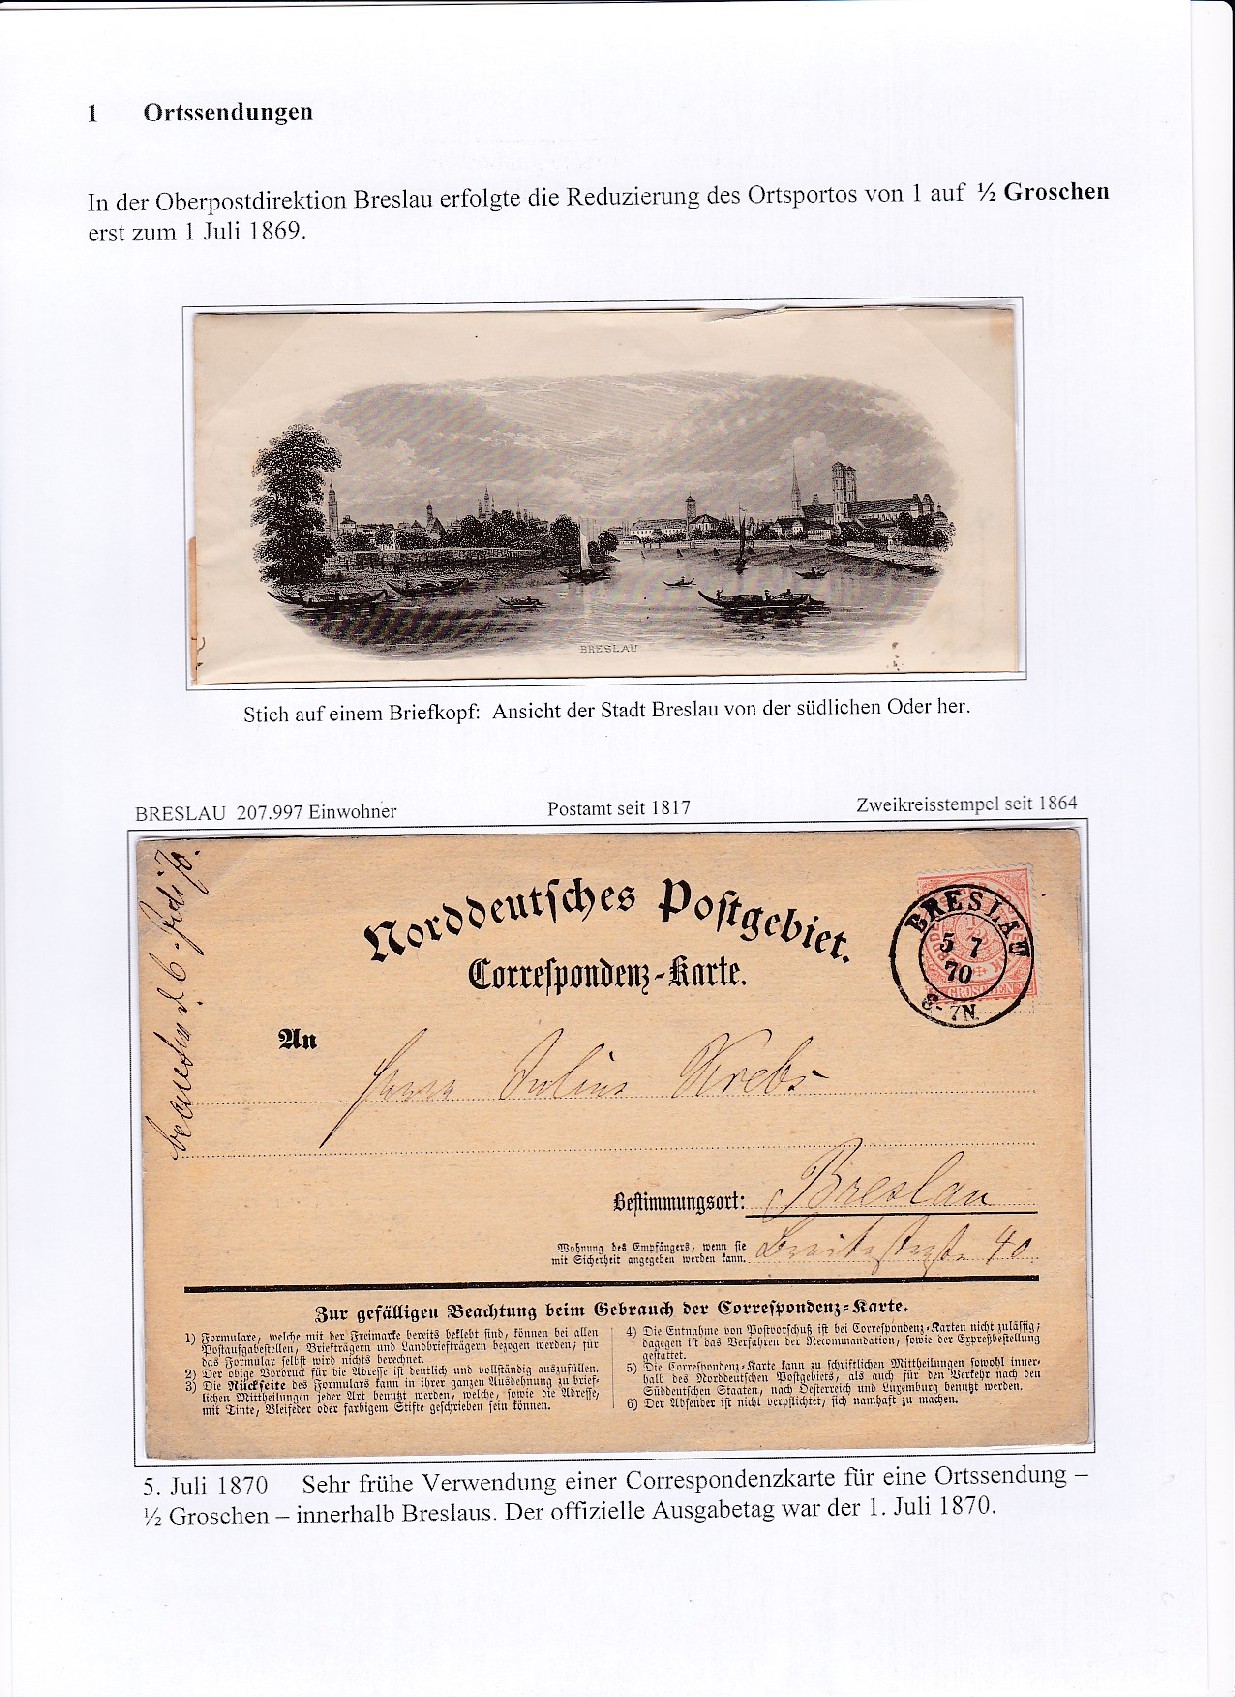 1 Ortssendungen
In der Oberpostdirektion Breslau erfolgte die Reduzierung des Ortsportos von 1 auf ½ Groschen
erst zum 1 Juli 1869.
BRESLAU
Stich auf einem Briefkopf: Ansicht der Stadt Breslau von der südlichen Oder her.
BRESLAU 207.997 Einwohner Postamt seit 1817 Zweikreisstempel seit 1864
Norddeutsches Postgebiet.
Correspondenz-Karte.
BRESLAU
5 7
70
6-7N.
GROSCHEN
An
Herrn Julius Krebs
Bestimmungsort: Breslau
Wohnung des Empfängers, wenn sie
mit Sicherheit angegeben werden kann. 40
Zur gefälligen Beachtung beim Gebrauch der Correspondenz-Karte.
1) Formulare, welche mit der Freimarke bereits beklebt sind, können bei allen
Postaufgabestellen, Briefträgern und Landbriefträgern bezogen werden; für
das Formular selbst wird nichts berechnet.
2) Der obige Vordruck für die Adresse ist deutlich und vollständig auszufüllen.
3) Die Rückseite des Formulars kann in ihrer ganzen Ausdehnung zu brief-
lichen Mittheilungen jeder Art benutzt werden, welche, sowie die Adresse,
mit Tinte, Bleifeder oder farbigem Stifte geschrieben sein können.
4) Die Entnahme von Postvorschuß ist bei Correspondenz-Karten nicht zulässig;
dagegen ist das Verfahren der Recommandation, sowie der Expreßbestellung
gestattet.
5) Die Correspondenz-Karte kann zu schriftlichen Mittheilungen sowohl inner-
halb des Norddeutschen Postgebiets, als auch für den Verkehr nach den
Süddeutschen Staaten, nach Oesterreich und Luxemburg benutzt werden.
6) Der Absender ist nicht verpflichtet, sich namhaft zu machen.
5. Juli 1870 Sehr frühe Verwendung einer Correspondenzkarte für eine Ortssendung –
½ Groschen – innerhalb Breslaus. Der offizielle Ausgabetag war der 1. Juli 1870.